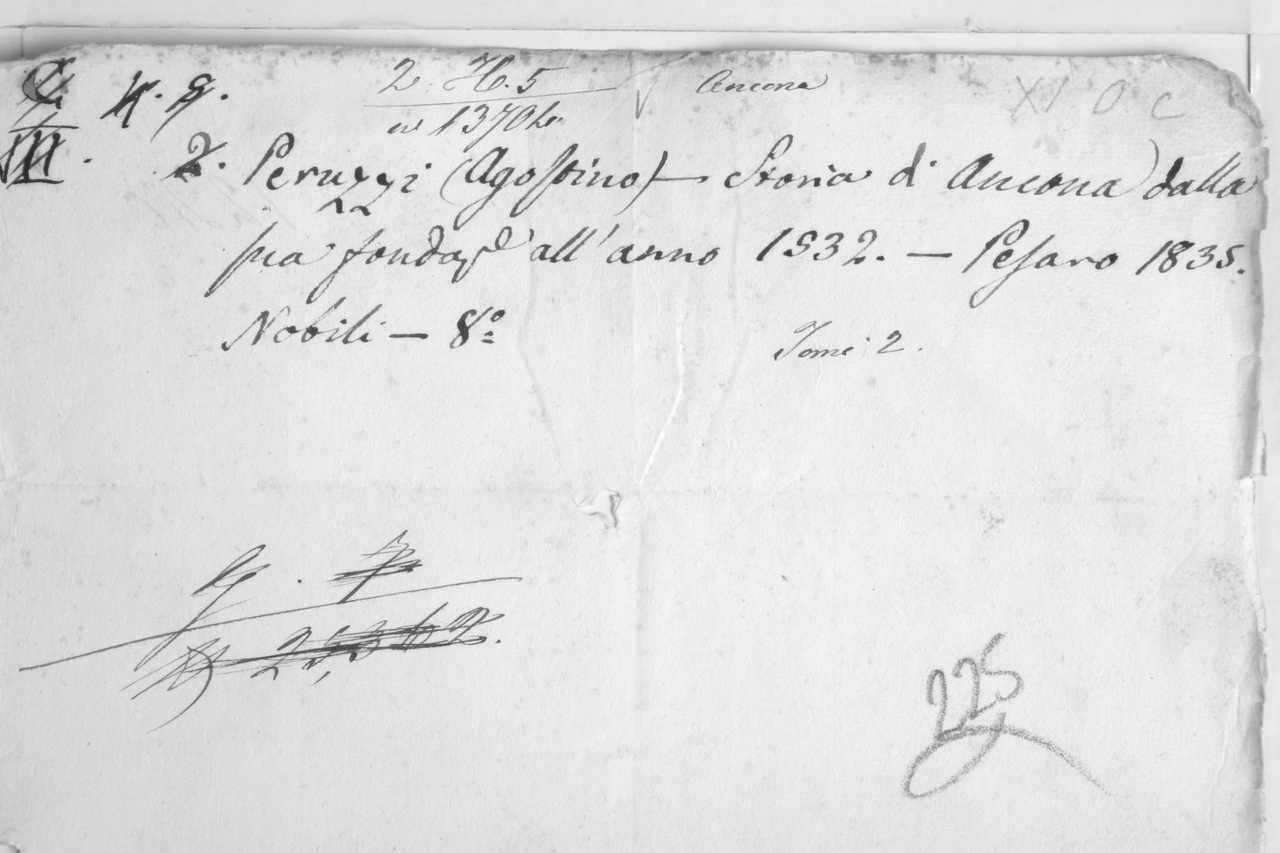 2. H. 5 Ancona XI O C
N. 9.
III.
2. Peruzzi (Agostino) — Storia di Ancona dalla
sua fondaz.e all'anno 1532. — Pesaro 1835.
Nobili — 8º
Tomi 2.
225